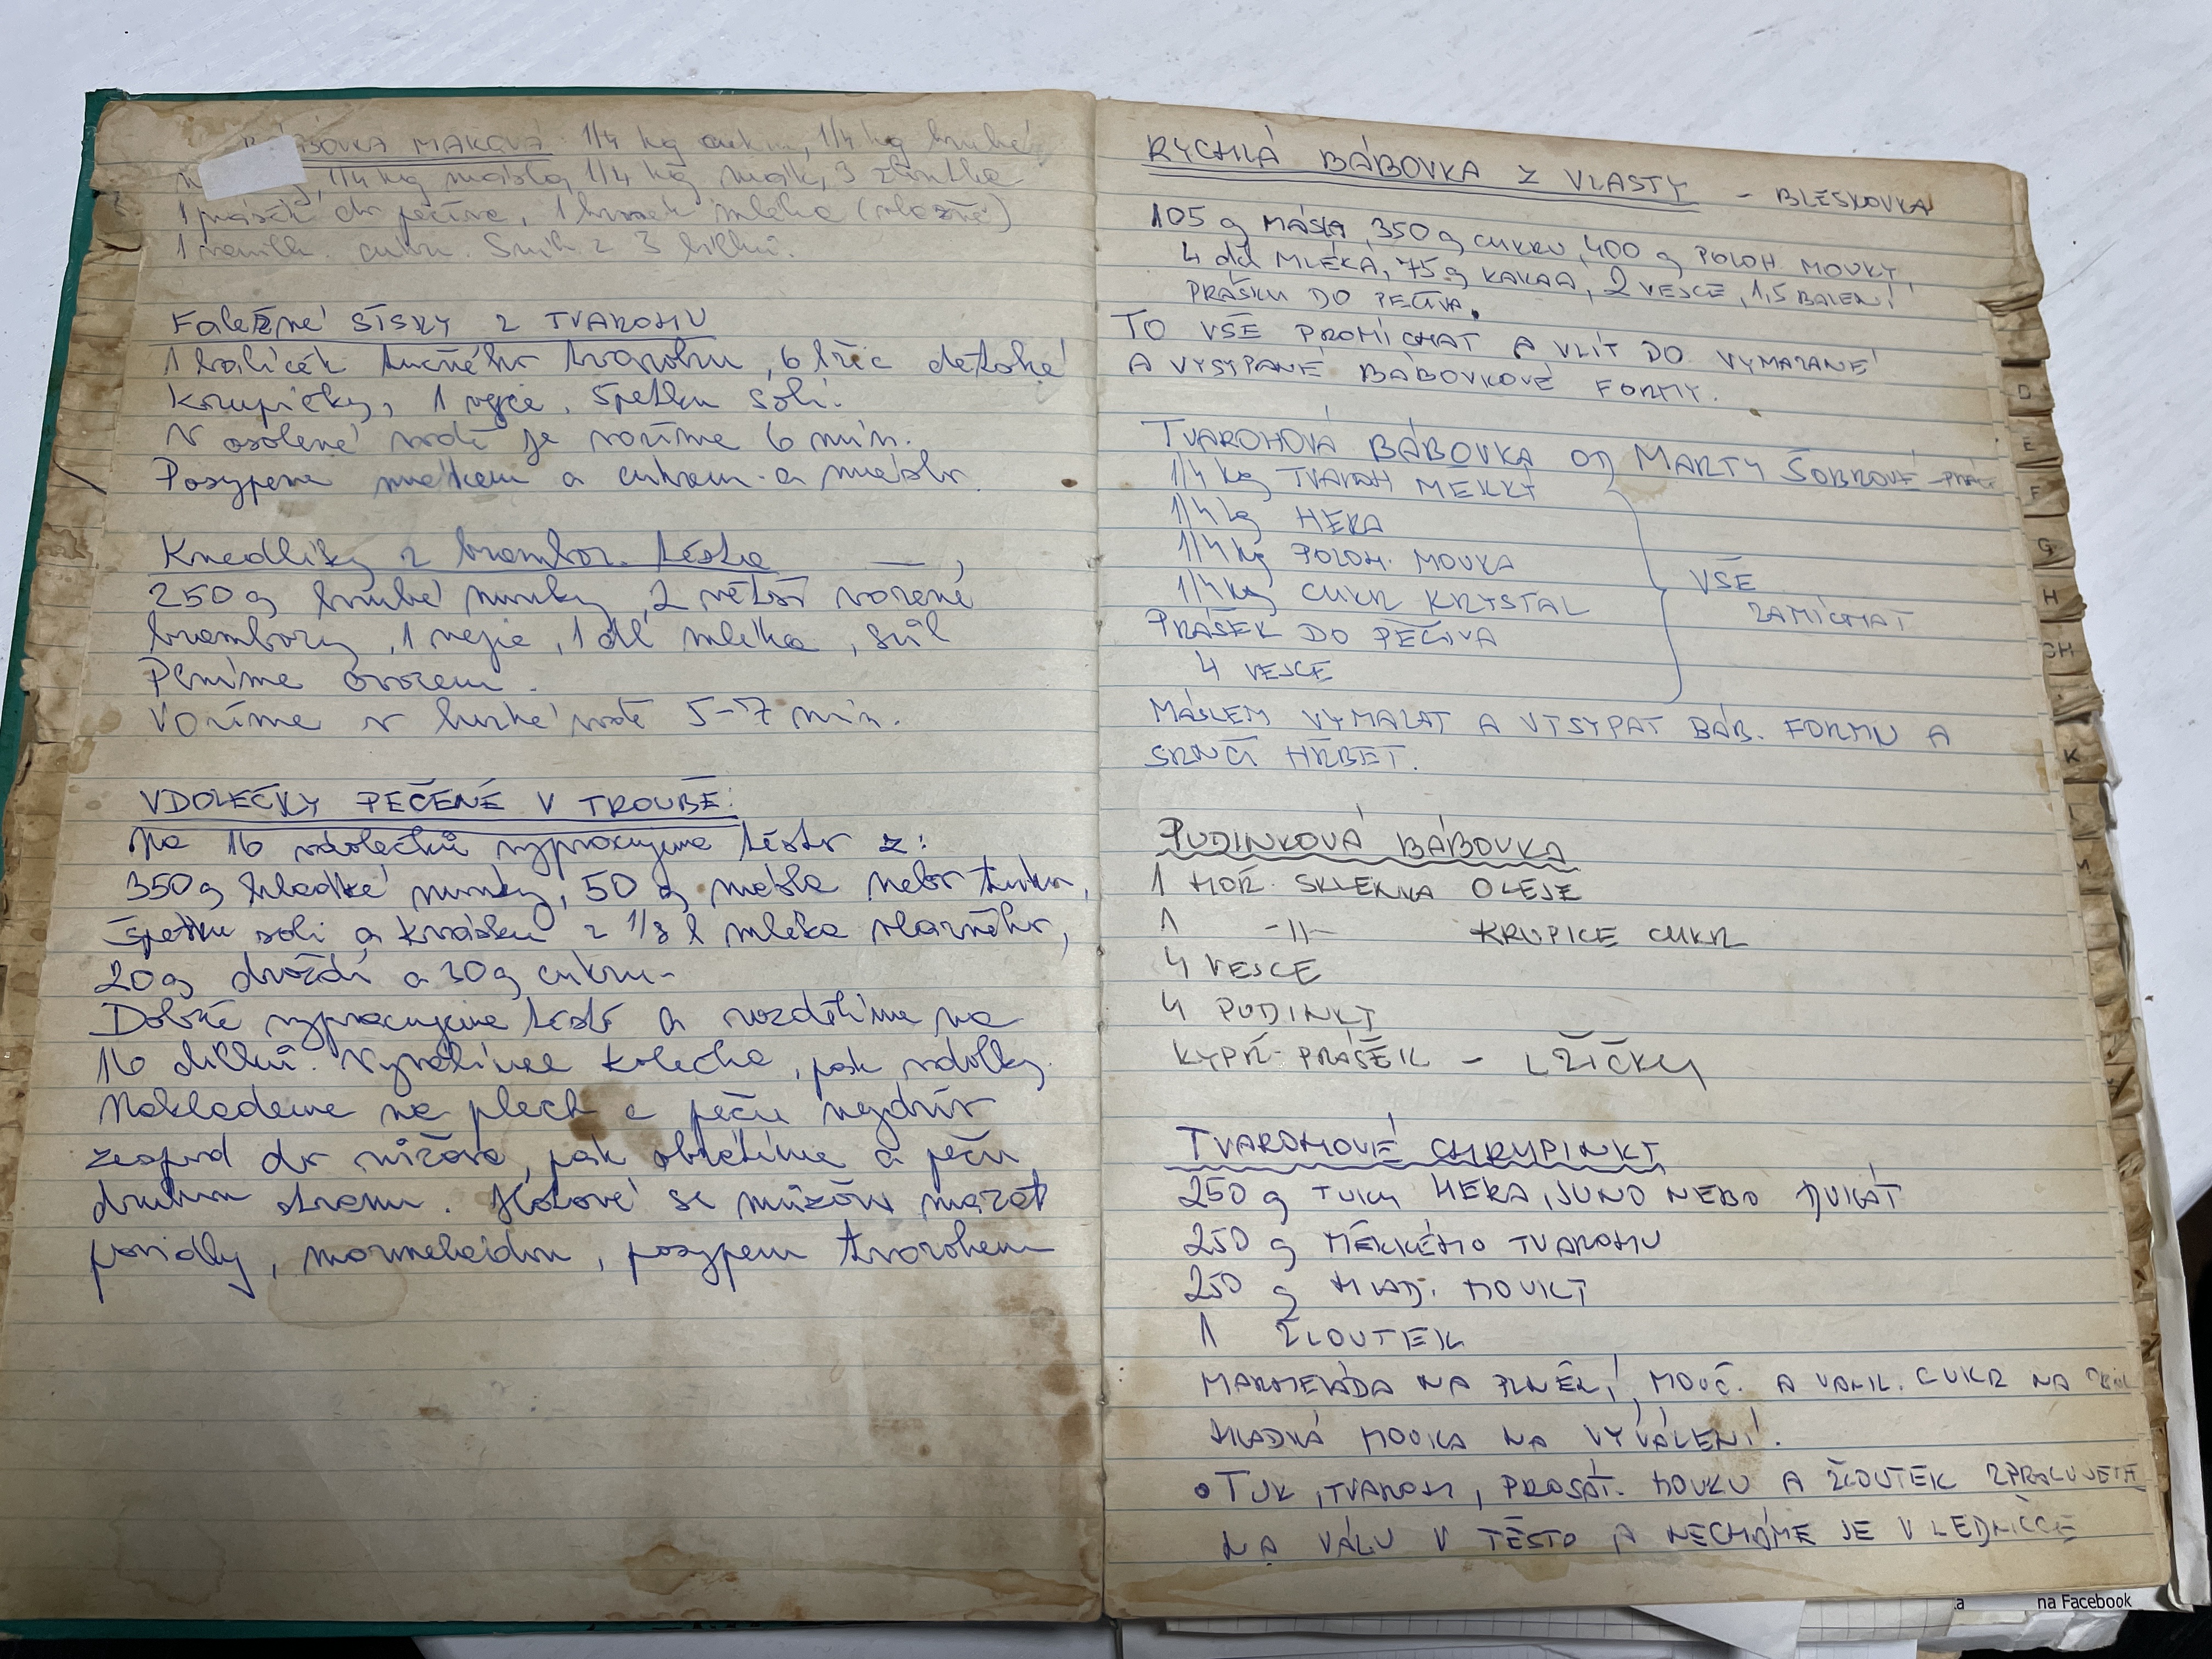 BÁBOVKA MAKOVÁ: 1/4 kg cukru, 1/4 kg hrubé
1/4 kg másla, 1/4 kg mouky, 3 žloutka
1 prášek do pečiva, 1 hrnek mléka (vlažné)
1 vanil. cukr. Sníh z 3 bílků.
Falešné šišky z tvarohu
1 balíček tučného tvarohu, 6 lžic dětské
krupičky, 1 vejce, špetku soli.
V osolené vodě je vaříme 6 min.
Posypem mákem a cukrem a máslo.
Knedlíky z brambor. těsta
250 g hrubé mouky, 2 větší vařené
brambory, 1 vejce, 1 dl mléka, sůl
Plníme ovocem.
Vaříme v horké vodě 5-7 min.
VDOLEČKY PEČENÉ V TROUBĚ:
Na 16 vdolečků vypracujeme těsto z:
350 g hladké mouky, 50 g másla nebo tuku,
špetku soli a kvásku z 1/8 l mléka vlažného,
20 g droždí a 30 g cukru.
Dobře vypracujeme těsto a rozdělíme na
16 dílků. Vyválíme kolečka, pak vdolky
Naklademe na plech a peču nejdřív
zespod do růžova, pak obrátíme a peču
druhou stranu. Hotové se můžou mazat
povidly, marmeládou, posypem tvarohem
RYCHLÁ BÁBOVKA Z VLASTY - BLESKOVKA
105 g MÁSLA, 350 g CUKRU, 400 g POLOH. MOUKY
4 dcl MLÉKA, 75 g KAKAA, 2 VEJCE, 1,5 BALENÍ
PRÁŠKU DO PEČIVA.
TO VŠE PROMÍCHAT A VLÍT DO VYMAZANÉ
A VYSYPANÉ BÁBOVKOVÉ FORMY.
TVAROHOVÁ BÁBOVKA OD MARTY ŠOBROVÉ
1/4 kg TVAROH MĚKKÝ
1/4 kg HERA
1/4 kg POLOH. MOUKA
1/4 kg CUKR KRYSTAL
PRÁŠEK DO PEČIVA
4 VEJCE
VŠE
ZAMÍCHAT
MÁSLEM VYMAZAT A VYSYPAT BÁB. FORMU A
SRNČÍ HŘBET.
PUDINKOVÁ BÁBOVKA
1 HOŘ. SKLENKA OLEJE
1 -11- KRUPICE CUKR
4 VEJCE
4 PUDINKY
KYPŘ. PRÁŠEK - LŽIČKU
TVAROHOVÉ CHRUPINKY
250 g TUKU HERA, JUNO NEBO
250 g MĚKKÉHO TVAROHU
250 g HLAD. MOUKY
1 ŽLOUTEK
MARMELÁDA NA PLNĚNÍ, MOUČ. A VANIL. CUKR NA
HLADKÁ MOUKA NA VYVÁLENÍ.
• TUK, TVAROH, PROSÁT. MOUKU A ŽLOUTEK ZPRACUJEM
NA VÁLU V TĚSTO A NECHÁME JE V LEDNICCE
D
E
F
G
H
CH
K
L
M
na Facebook